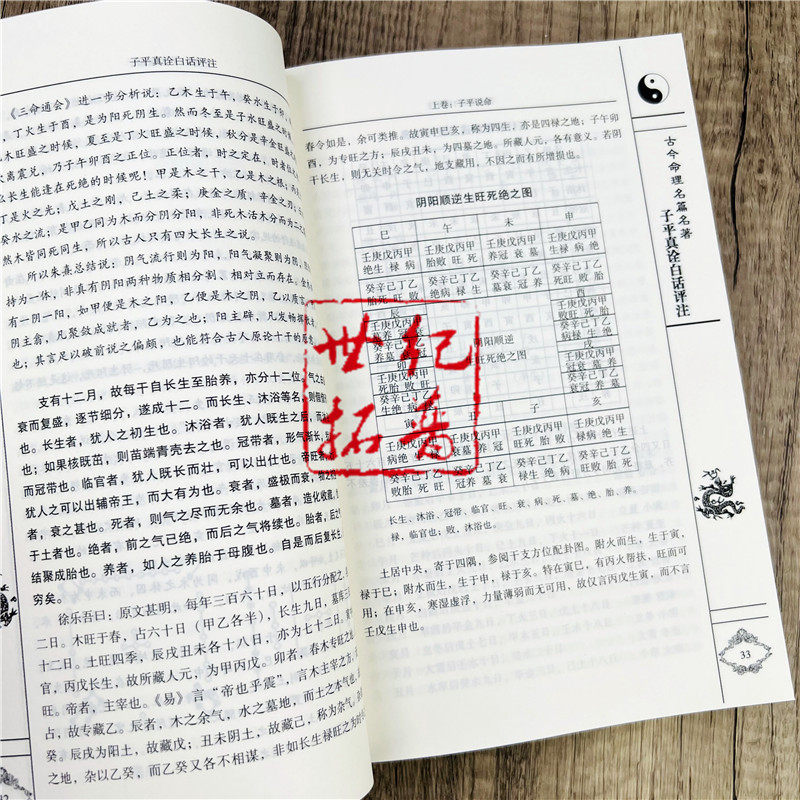 子平真诠白话评注
《三命通会》进一步分析说：乙木生于午，癸水生于
，丁火生于酉，是为阳死阴生。然而冬至是子水旺盛的时
木旺盛之时候，夏至是丁火旺盛之时候，秋分是辛金旺盛
火离震兑，乃子午卯酉之正位。正位者，时之定在，时者
么长生能逢在死绝的时候呢！甲是木之干，乙是木之根；丙
丁是火之光；戊土之刚，己土之柔；庚金之质，辛金之刃；
癸水之流；是甲乙同为木而分阴分阳，非死木活木分而为二
然木皆同死同生，所以古人只有四大长生之说。
所以朱熹总结说：阴气流行则为阳，阳气凝聚则为阴，
持为一体，非真有阴阳两种物质相分割、相对立而存在。
有一阴一阳，如甲便是木之阳，乙便是木之阴，乙以质言
阴主翕，凡聚敛成就者，乙为之也；阳主辟，凡发畅挥散
也；其言足以破前说之偏颇，也能符合古人原论十干的原意
支有十二月，故每干自长生至胎养，亦分十二位。气之
衰而复盛，逐节细分，遂成十二。而长生、沐浴等名，则假借
也。长生者，犹人之初生也。沐浴者，犹人既生之后，而
也；如果核既茁，则苗端青壳去之也。冠带者，形气渐长，
而冠带也。临官者，犹人既长而壮，可以出仕也。帝旺者
犹人之可以出辅帝王，而大有为也。衰者，盛极而衰，物之
者，衰之甚也。死者，则气之尽而无余也。墓者，造化收藏
于土者也。绝者，前之气已绝，而后之气将续也。胎者，后之
结聚成胎也。养者，如人之养胎于母腹也。自是而后复长生
穷矣。
徐乐吾曰：原文甚明，每年三百六十日，以五行分配之，
二日。木旺于春，占六十日（甲乙各半），长生九日，墓库三
十二日。土旺四季，辰戌丑未各十八日，亦为七十二日。寅
官，丙戊长生，故所藏人元，为甲丙戊。卯者，春木专旺之地
旺。帝者，主宰也。《易》言“帝也乎震”，言木主宰之方，
占，故专藏乙。辰者，木之余气，水之墓地，而土之本气也，
癸。辰戌为阳土，故藏戊；丑未阴土，故藏己，称为杂气。
之地，杂以乙癸，而乙癸又各不相谋，非如长生禄旺之为时
上卷：子平说命
春令如是，余可类推。故寅申巳亥，称为四生，亦是四禄之地；子午卯
酉，为专旺之方；辰戌丑未，为四墓之地。所藏人元，各有意义。若阴
干长生，则无关时令之气，地支藏用，不因之而有所增损也。
阴阳顺逆生旺死绝之图
巳 午 未 申
壬庚戊丙甲 壬庚戊丙甲 壬庚戊丙甲 壬庚戊丙甲
绝生 禄 病 胎败 旺 死 养冠 衰 墓 生禄 病 绝
癸辛己丁乙 癸辛己丁乙 癸辛己丁乙 癸辛己丁乙
胎死 旺 败 绝病 禄 生 墓衰 冠 养 死旺 败 胎
辰 酉
壬庚戊丙甲 壬庚戊丙甲
墓养 冠 衰 败旺 死 胎
癸辛己丁乙 癸辛己丁乙
养墓 衰 冠 病禄 生 绝
戌
阴阳顺逆
旺死绝之图
卯
壬庚戊丙甲 壬庚戊丙甲
死胎 败 旺 冠衰 墓 养
癸辛己丁乙 癸辛己丁乙
生绝 病 禄 衰冠 养 墓
寅 丑 子 亥
壬庚戊丙甲 壬庚戊丙甲 壬庚戊丙甲 壬庚戊丙甲
病绝 生 禄 衰墓 养 冠 旺死 胎 败 禄病 绝 生
癸辛己丁乙 癸辛己丁乙 癸辛己丁乙 癸辛己丁乙
败胎 死 旺 冠养 墓 衰 禄生 绝 病 旺败 胎 死
长生、沐浴、冠带、临官、旺、衰、病、死、墓、绝、胎、养。
禄，临官也；败，沐浴也。
土居中央，寄于四隅，参阅干支方位配卦图。附火而生，生于寅，
禄于巳；附水而生，生于申，禄于亥。特在寅巳，有丙火帮扶，旺而可
用；在申亥，寒湿虚浮，力量薄弱而无可用，故仅言丙戊生寅，而不言
壬戊生申也。
古今命理名篇名著
子平真诠白话评注
33
世纪
拓普